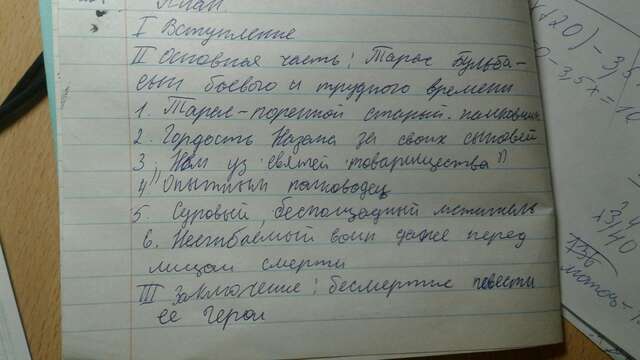 План.
I Вступление
II Основная часть: Тарас Бульба-
сын боевого и трудного времени
1. Тарас-коренной старый полковник
2. Гордость Казака за своих сыновей
3. Нет уз святей товарищества"
4" Опытным полководец
5. Суровый, беспощадный мститель
6. Несгибаемый воин даже перед
лицом смерти
III Заключение: бессмертие повести
ее герои
x(20) - 3,5
0-3,5x=10